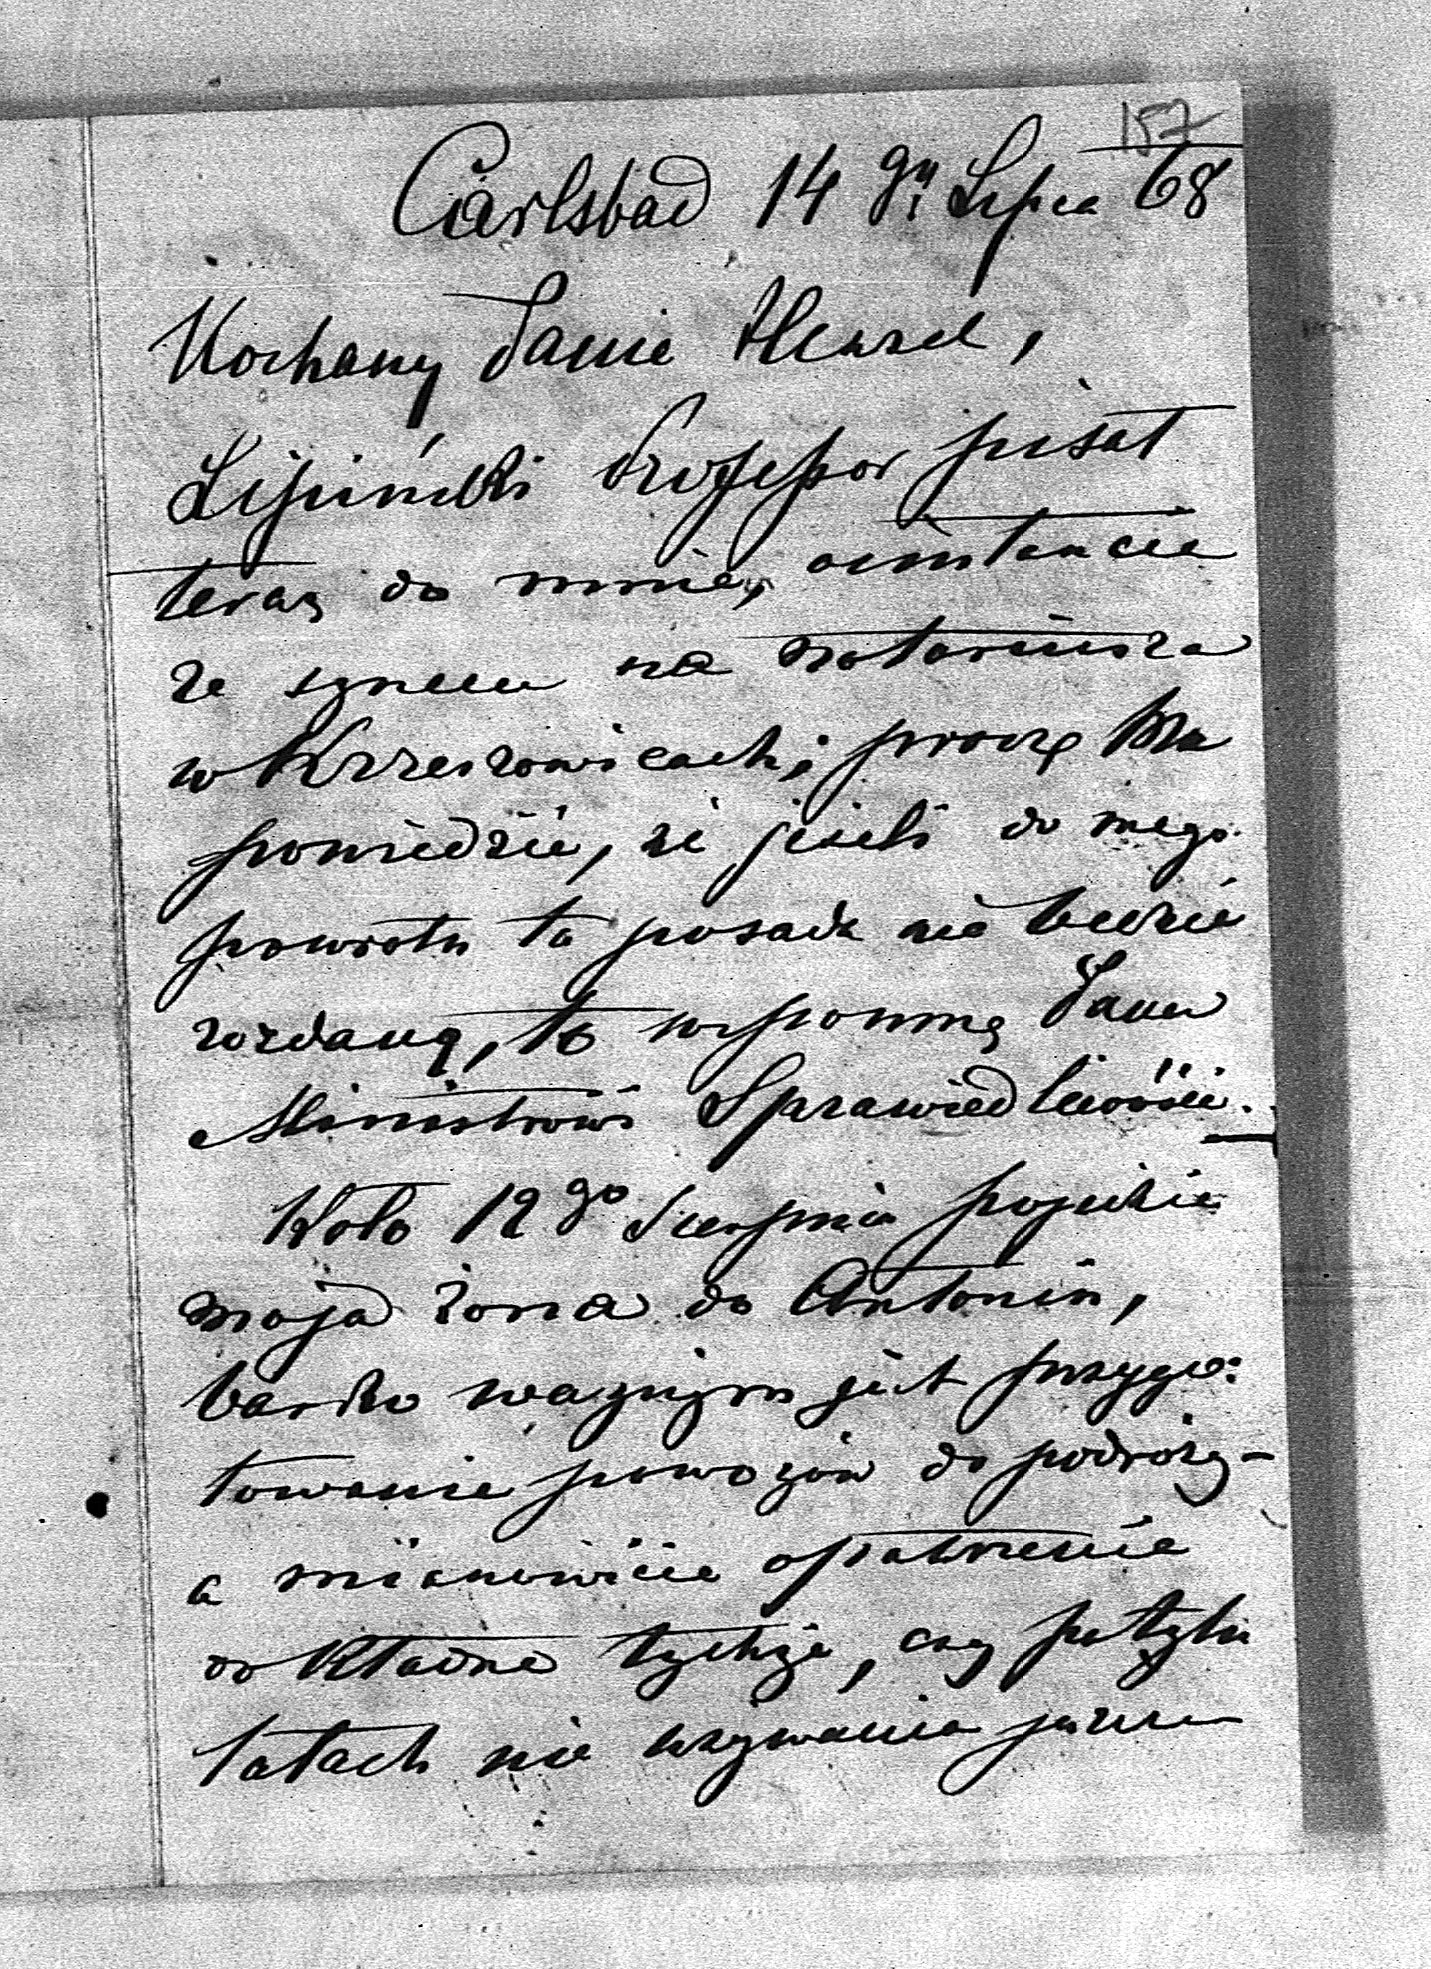 157
Carlsbad 14 go Lipca 68
Kochany Panie Henzel,
Lipiński Professor pisał
teraz do mnie, o instancie
ze synem na notariusza
w Krzeszowicach; proszę Mu
powiedzié, ze jezeli do mego
powrotu ta posada nié bedzié
rozdaną, to wspomnę Panu
Ministrowi Sprawiedliwości.
Koło 12 go Sierpnia pojedzie
moja żona do Antonin,
bardzo ważnym jest przygo:
towanie powozów do podróży -
a mianowicie opatrzenie
dokładne tychże, czy po tylu
latach nie używania